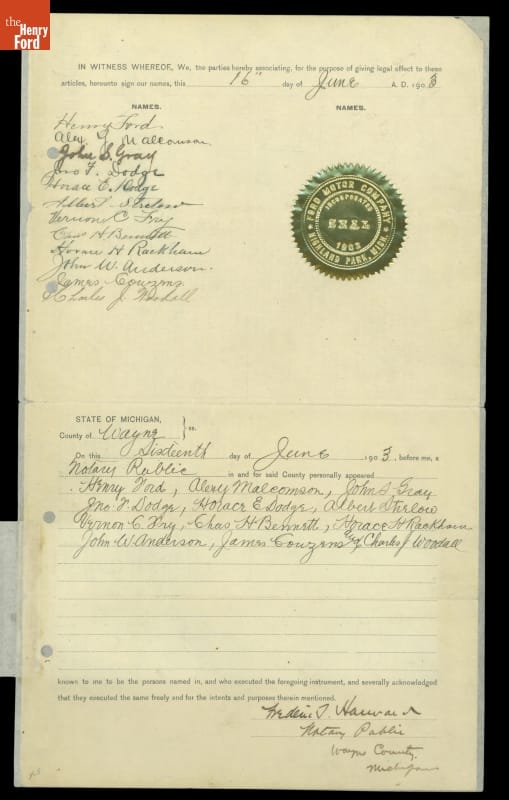 the
Henry
Ford
IN WITNESS WHEREOF, We, the parties hereby associating, for the purpose of giving legal effect to these
articles, hereunto sign our names, this 16" day of June A. D. 1903
NAMES. NAMES.
Henry Ford
Alex Y Malcomson
John S. Gray
Jno F. Dodge
Horace E. Dodge
Albert Strelow
Vernon C. Fry
Chas H. Bennett
Horace H Rackham
John W. Anderson
James Couzens
Charles J. Woodall
FORD MOTOR COMPANY
INCORPORATED
SEAL
1903
HIGHLAND PARK, MICH.
STATE OF MICHIGAN,
County of Wayne } ss.
On this Sixteenth day of June 1903, before me, a
Notary Public in and for said County personally appeared
Henry Ford, Alex Y Malcomson, John S Gray
Jno F. Dodge, Horace E Dodge, Albert Strelow
Vernon C. Fry, Chas H. Bennett, Horace H Rackham
John W. Anderson, James Couzens & Charles J Woodall
known to me to be the persons named in, and who executed the foregoing instrument, and severally acknowledged
that they executed the same freely and for the intents and purposes therein mentioned.
Notary Public
Wayne County
Michigan